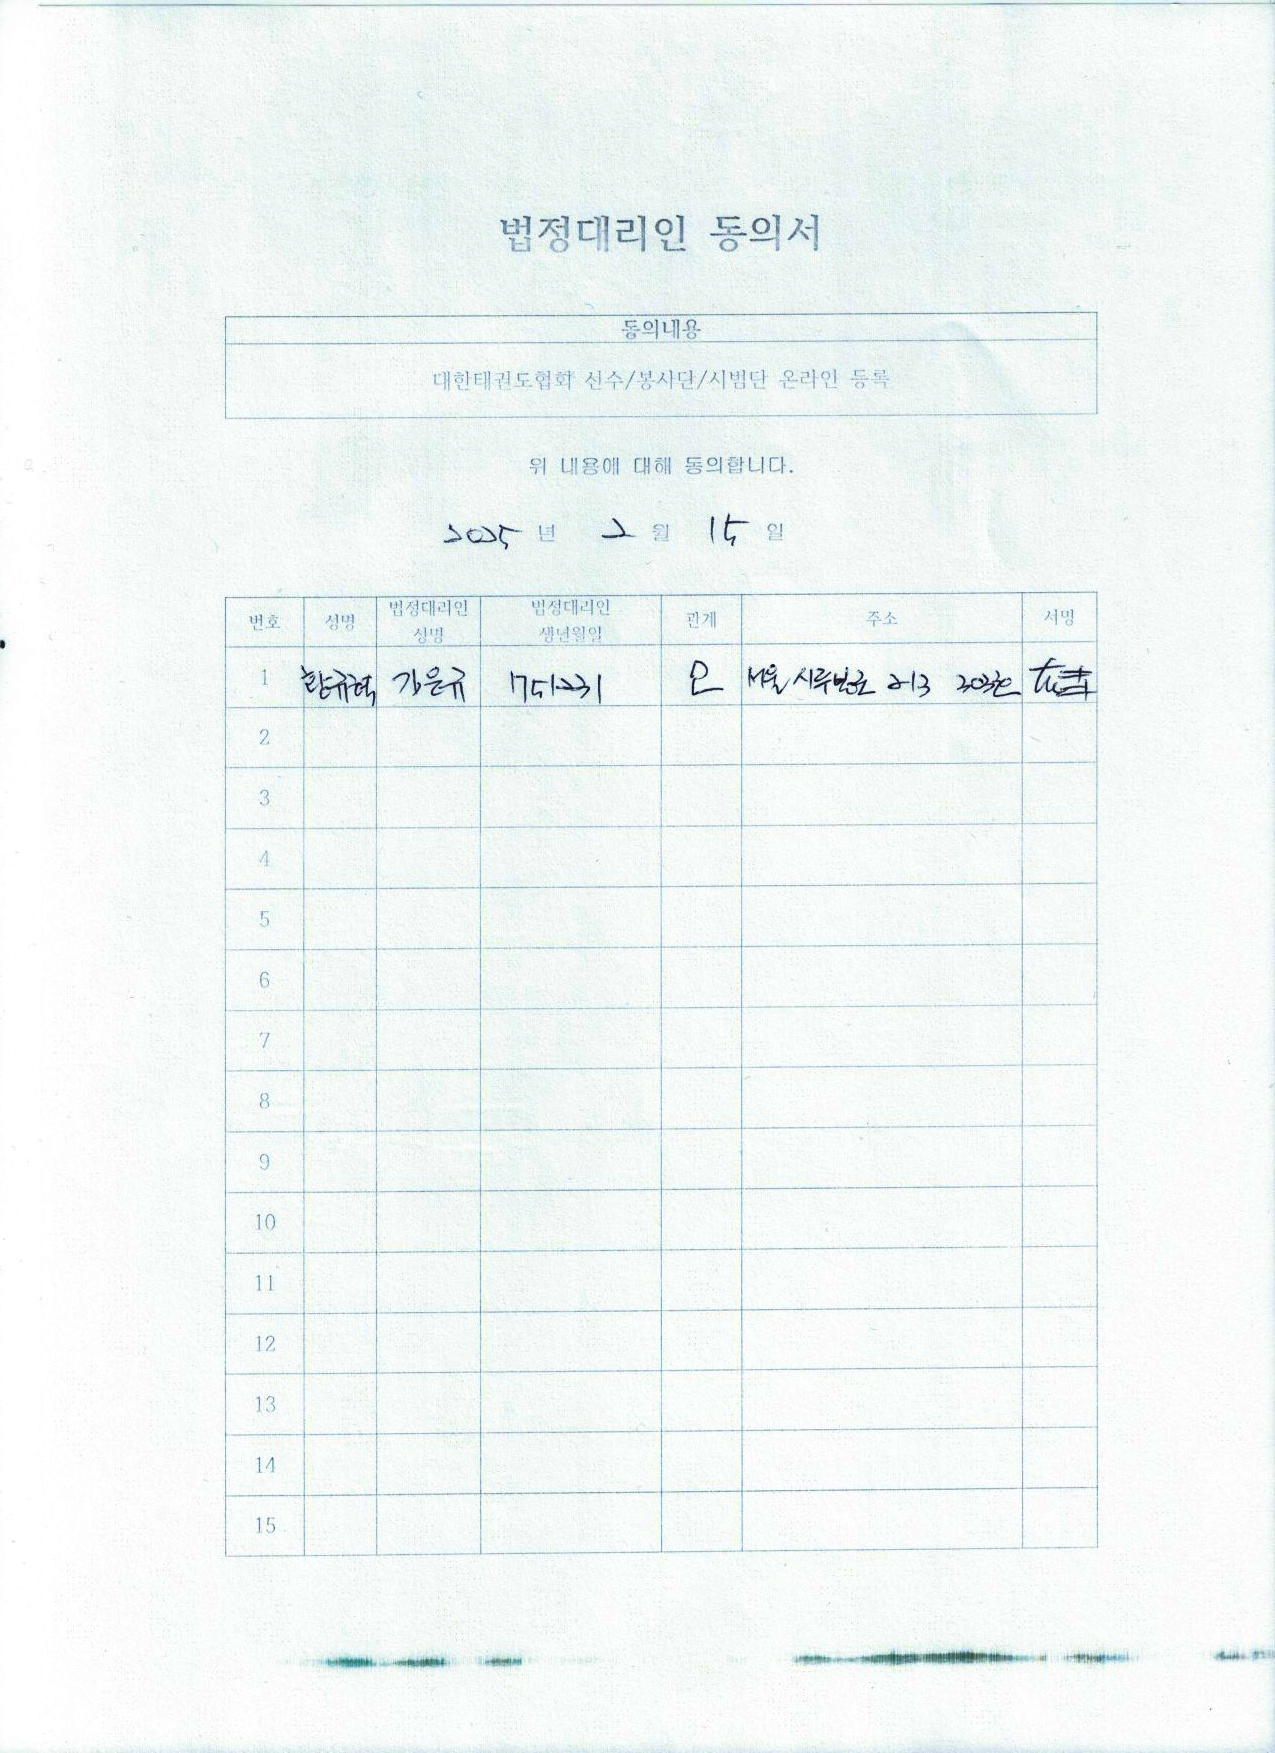 법정대리인 동의서
동의내용
대한태권도협회 선수/봉사단/시범단 온라인 등록
위 내용에 대해 동의합니다.
2025 년 2 월 15 일
번호 성명 법정대리인 성명 법정대리인 생년월일 관계 주소 서명
1 황규혁 강은규 751231 모 서울
2
3
4
5
6
7
8
9
10
11
12
13
14
15